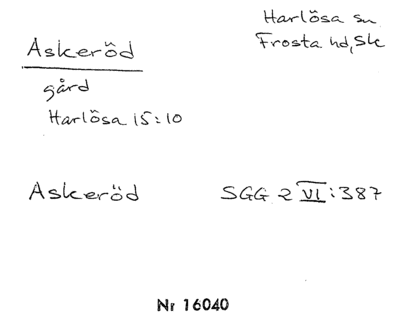 Askeröd
Harlösa sn
Frosta hd, Sk
gård
Harlösa 15:10
Askeröd SGG 2 VI:387
Nr 16040